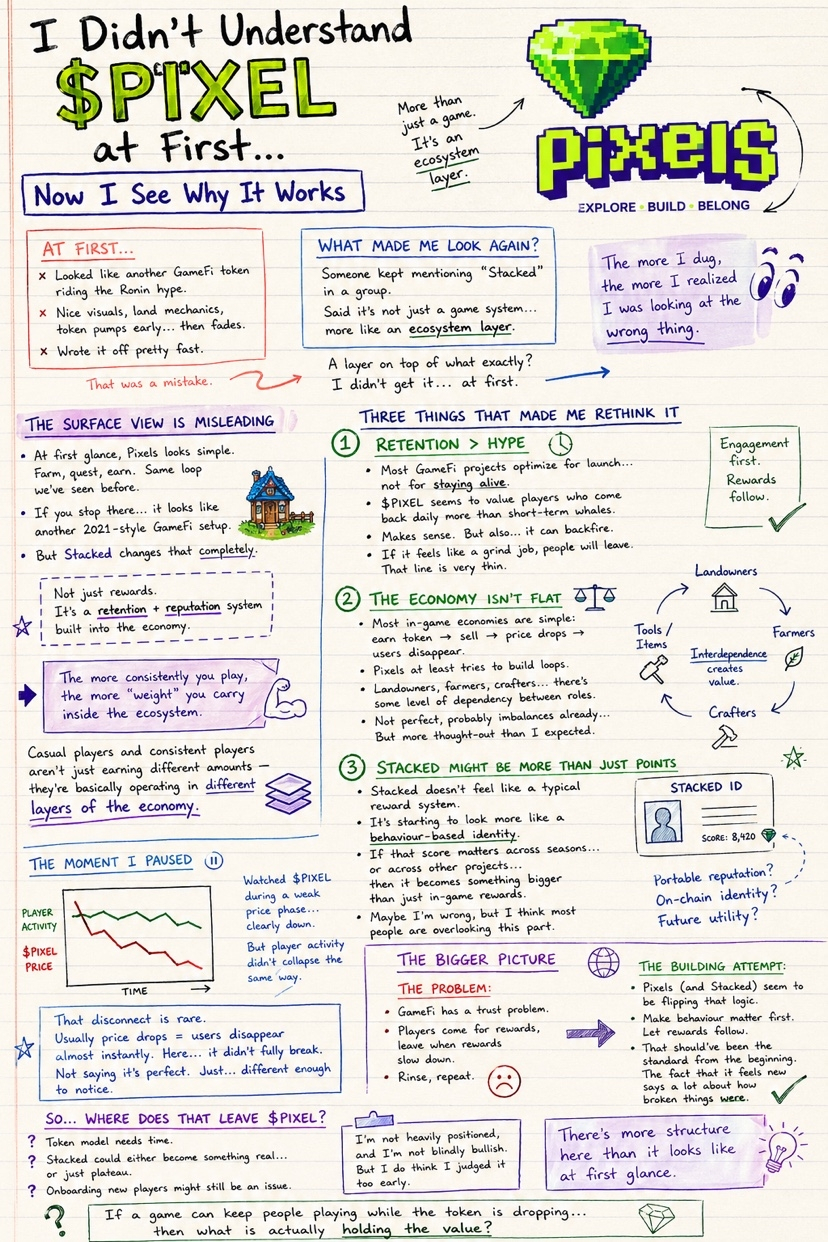 I Didn't Understand
$PIXEL
at First...
Now I See Why It Works
More than
just a game.
It's an
ecosystem
layer.
pixels
EXPLORE • BUILD • BELONG
AT FIRST...
× Looked like another GameFi token
riding the Ronin hype.
× Nice visuals, land mechanics,
token pumps early... then fades.
× Wrote it off pretty fast.
That was a mistake.
WHAT MADE ME LOOK AGAIN?
Someone kept mentioning "Stacked"
in a group.
Said it's not just a game system...
more like an ecosystem layer.
A layer on top of what exactly?
I didn't get it... at first.
The more I dug,
the more I realized
I was looking at the
wrong thing.
THE SURFACE VIEW IS MISLEADING
• At first glance, Pixels looks simple.
Farm, quest, earn. Same loop
we've seen before.
• If you stop there... it looks like
another 2021-style GameFi setup.
• But Stacked changes that completely.
Not just rewards.
It's a retention + reputation system
built into the economy.
The more consistently you play,
the more "weight" you carry
inside the ecosystem.
Casual players and consistent players
aren't just earning different amounts —
they're basically operating in different
layers of the economy.
THREE THINGS THAT MADE ME RETHINK IT
1 RETENTION > HYPE
• Most GameFi projects optimize for launch...
not for staying alive.
• $PIXEL seems to value players who come
back daily more than short-term whales.
• Makes sense. But also... it can backfire.
• If it feels like a grind job, people will leave.
That line is very thin.
Engagement
first.
Rewards
follow.
2 THE ECONOMY ISN'T FLAT
• Most in-game economies are simple:
earn token → sell → price drops →
users disappear.
• Pixels at least tries to build loops.
• Landowners, farmers, crafters... there's
some level of dependency between roles.
• Not perfect, probably imbalances already...
But more thought-out than I expected.
Landowners
Farmers
Crafters
Tools /
Items
Interdependence
creates
value.
3 STACKED MIGHT BE MORE THAN JUST POINTS
• Stacked doesn't feel like a typical
reward system.
• It's starting to look more like a
behaviour-based identity.
• If that score matters across seasons...
or across other projects...
then it becomes something bigger
than just in-game rewards.
• Maybe I'm wrong, but I think most
people are overlooking this part.
STACKED ID
SCORE: 8,420
Portable reputation?
On-chain identity?
Future utility?
THE MOMENT I PAUSED
PLAYER
ACTIVITY
$PIXEL
PRICE
TIME
Watched $PIXEL
during a weak
price phase...
clearly down.
But player activity
didn't collapse the
same way.
That disconnect is rare.
Usually price drops = users disappear
almost instantly. Here... it didn't fully break.
Not saying it's perfect. Just... different enough
to notice.
THE BIGGER PICTURE
THE PROBLEM:
• GameFi has a trust problem.
• Players come for rewards,
leave when rewards
slow down.
• Rinse, repeat.
THE BUILDING ATTEMPT:
• Pixels (and Stacked) seem to
be flipping that logic.
• Make behaviour matter first.
Let rewards follow.
• That should've been the
standard from the beginning.
The fact that it feels new
says a lot about how
broken things were.
SO... WHERE DOES THAT LEAVE $PIXEL?
? Token model needs time.
? Stacked could either become something real...
or just plateau.
? Onboarding new players might still be an issue.
I'm not heavily positioned,
and I'm not blindly bullish.
But I do think I judged it
too early.
There's more structure
here than it looks like
at first glance.
? If a game can keep people playing while the token is dropping...
then what is actually holding the value?